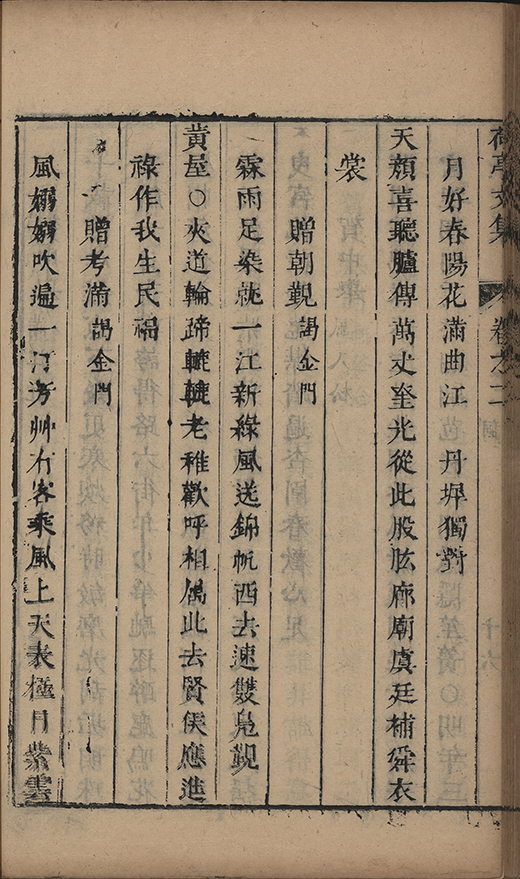 荷亭文集 卷之二
月好春陽花滿曲江丹墀獨對
天顏喜聽臚傳萬丈奎光從此股肱廊廟虞廷補舜衣
裳
贈朝覲 謁金門
霖雨足染就一江新綠風送錦帆西去速雙鳧覲
黄屋○夾道輪蹄轆轆老稚歡呼相屬此去賢侯應進
祿作我生民福
贈考滿 謁金門
風嫋嫋吹遍一汀芳艸有客乘風上天表極目紫雲